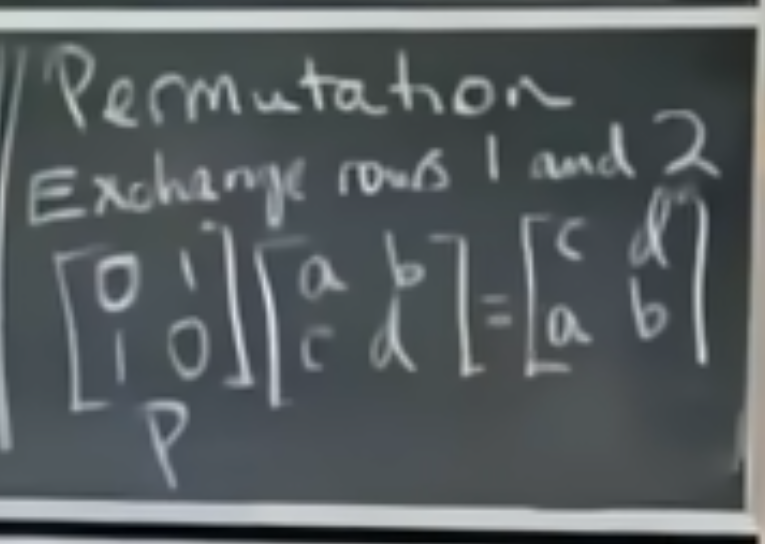 Permutation
Exchange rows 1 and 2
[0 1] [a b] = [c d]
[1 0] [c d]   [a b]
P